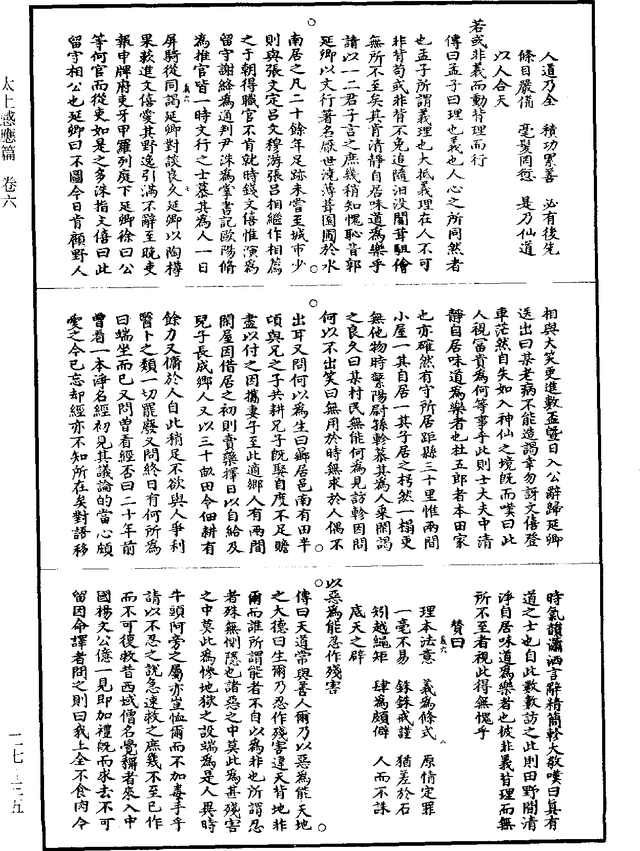 人道乃全　積功累善　必有後先
條目嚴備　毫髮罔愆　是乃仙道
以人合天
若或非義而動背理而行
傳曰孟子曰理也義也人心之所同然者
也孟子所謂義理也大抵義理在人不可
非背苟或非背不免追隨汩沒闒茸駔儈
無所不至矣其肯清靜自居味道為樂乎
請以一二君子言之庶幾稍知愧恥昔郭
延卿以文行著名厭世澆薄葺園圃於水
南居之凡二十餘年足跡未嘗至城市少
則與張文定呂文穆游張呂相繼作相薦
之于朝得職官不肯就時錢文僖惟演為
留守謝絳為通判尹洙為掌書記歐陽脩
為推官皆一時文行之士慕其為人一日
屏騎從同謁延卿對談良久延卿以陶樽
果蓏進文僖愛其野逸引滿不辭至晚吏
報申牌府吏牙甲羅列庭下延卿徐曰公
等何官而從吏如是之多洙指文僖曰此
留守相公也延卿曰不圖今日肯顧野人
相與大笑更進數盃暨日入公辭歸延卿
送出曰某老病不能造謁幸勿訝文僖登
車茫然自失如入神仙之境既而嘆曰此
人視富貴為何等事乎此則士大夫中清
靜自居味道為樂者也杜五郎者本田家
也亦確然有守所居距縣三十里惟兩間
小屋一其自居一其子居之枵然一榻更
無他物時黎陽尉孫軫慕其為人乘閑謁
之良久曰某村民無能何為見訪軫因問
何以不出笑曰無用於時無求於人偶不
出耳又問何以為生曰鄉居邑南有田半
頃與兄之子共耕兄子既娶自度不足贍
盡以付之因攜妻子至此適鄉人有兩間
閑屋因借居之初則賣藥擇日以自給及
兒子長成鄉人又以三十畝田令佃耕有
餘力又傭於人自此稍足不欲與人爭利
醫卜之類一切罷廢又問終日有何所為
曰端坐而已又問曾看經否曰二十年前
曾看一本淨名經初見其議論的當心頗
愛之今已忘却經亦不知所在矣對語移
時氣韻瀟洒言辭精簡軫大敬嘆曰真有
道之士也自此數數訪之此則田野間清
淨自居味道為樂者也彼非義背理而無
所不至者視此得無愧乎
贊曰
理本法意　義為條式　原情定罪
一毫不易　銖銖戒謹　猶差於石
矧越繩矩　肆為頗僻　人而不誅
底天之辟
以惡為能忍作殘害
傳曰天道常與善人爾乃以惡為能天地
之大德曰生爾乃忍作殘害違天背地非
爾而誰所謂能者不自以為非也所謂忍
者殊無惻隱也諸惡之中莫此為甚殘害
之中莫此為慘地獄之設端為是人異時
牛頭阿旁之屬亦豈恤爾而不加毒手乎
請以不忍之說急速救之庶幾不至已作
而不可復救昔西域僧名覺稱者來入中
國楊文公億一見即加禮既而求去不可
留因命譯者問之則曰我上全不食肉今
太上感應篇　卷六
二七-三五